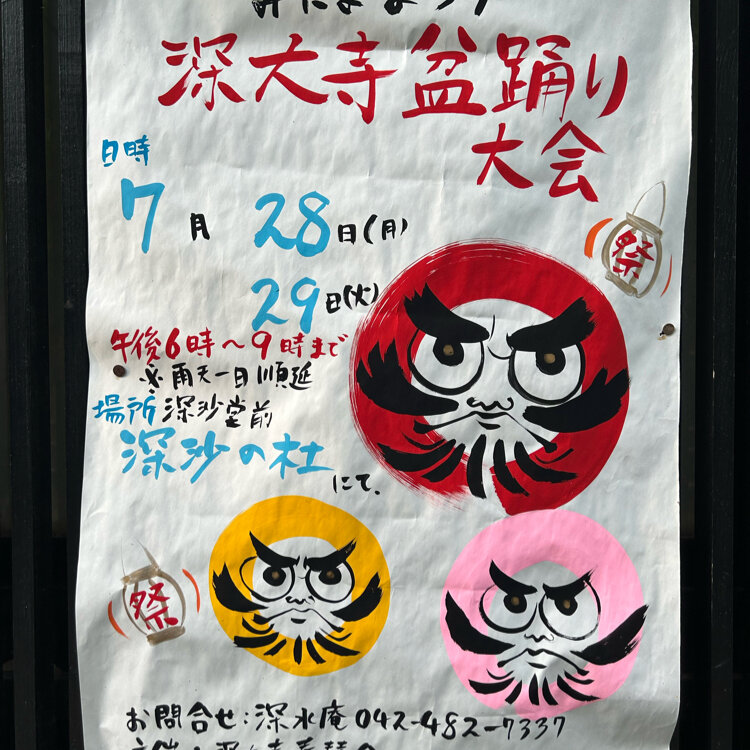 みたままつり
深大寺盆踊り
大会
日時
7月 28日(月)
29日(火)
午後6時～9時まで
※雨天一日順延
場所 深沙堂前
深沙の杜
にて、
祭
祭
お問合せ:深水庵 042-482-7337